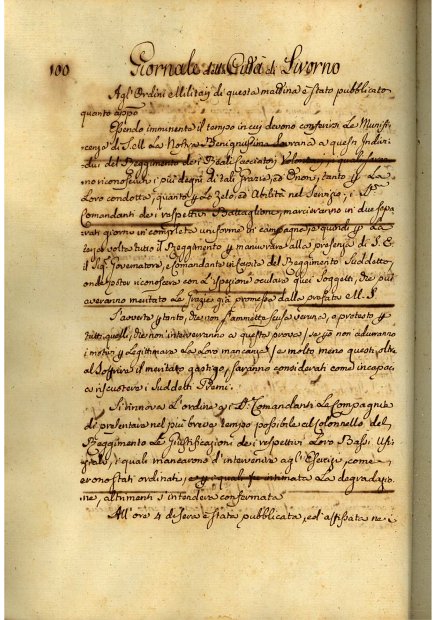 100 Giornale della Città di Livorno
Agl'Ordini Militari di questa mattina è stato pubblicato
quanto app.o
Essendo imminente il tempo in cui devono conferirsi le Munifi-
cenze di S. ell. La Nostra Benignissima Sovrana a quest'Indivi-
dui del Reggimento de'i Reali Cacciatori Volontari, i quali saran-
no riconosciuti i più degni di tali Grazie, ed Onori, tanto p La
Loro condotta, quanto p Lo zelo, ed Abilità nel Servizio; i
Comandanti de'i respettivi Battaglioni, marcieranno in due sepa-
rati giorni in completa uniforme in campagna, e quindi p la
terza volta tutto il Reggimento p manuvrare alla presenza di S. E.
il Sig. Governatore, e Comandante in Capite del Reggimento Suddetto,
onde possa riconoscere con L'ispezione oculare quei Soggetti, che più
averanno meritato Le Grazie già promesse dalla prefata M. S.
S'averte p tanto, che non s'ammette scusa veruna, o pretesto p
tutti quelli, che non interverranno a questa prova, se p non adduranno
i motivi p Legittimare La Loro mancanza, e molto meno questi oltre
al Soffrire il meritato gastigo, saranno considerati come incapaci
a riscuotere i Suddetti Premi.
Si rinnova L'ordine a i Comandanti Le Compagnie
di presentare nel più breve tempo possibile al Colonnello del
Reggimento Le Giustificazioni de'i respettivi Loro Bassi Ufi-
ziali, i quali mancarono d'intervenire agl'Esercizi, come
erono stati ordinati, e p i quali fu intimata La degradazio-
ne, altrimenti s'intenderà confermata
All'ore 4 di sera è stata pubblicata, ed affissata ne i